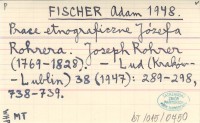 P
FISCHER Adam 1948.
Prace etnograficzne Józefa
Rohrera. Joseph Rohrer
(1769-1828). – Lud (Kraków-
– Lublin) 38 (1947): 289-298,
738-739.
MT
bt/045/0450